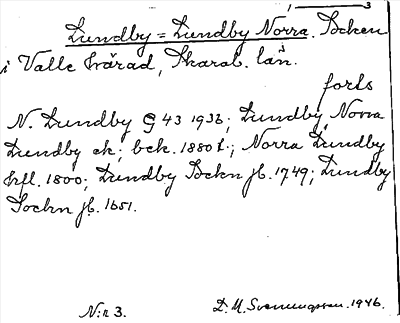 1 3
Lundby = Lundby Norra. Socken
i Valle härad, Skarab. län.
forts
N. Lundby G 43 1936; Lundby, Norra
Lundby ek; bek. 1880 t.; Norra Lundby
hfl. 1800; Lundby Sockn jb. 1749; Lundby
Sockn jb. 1651.
N:r 3. D. M. Svenungsson. 1946.